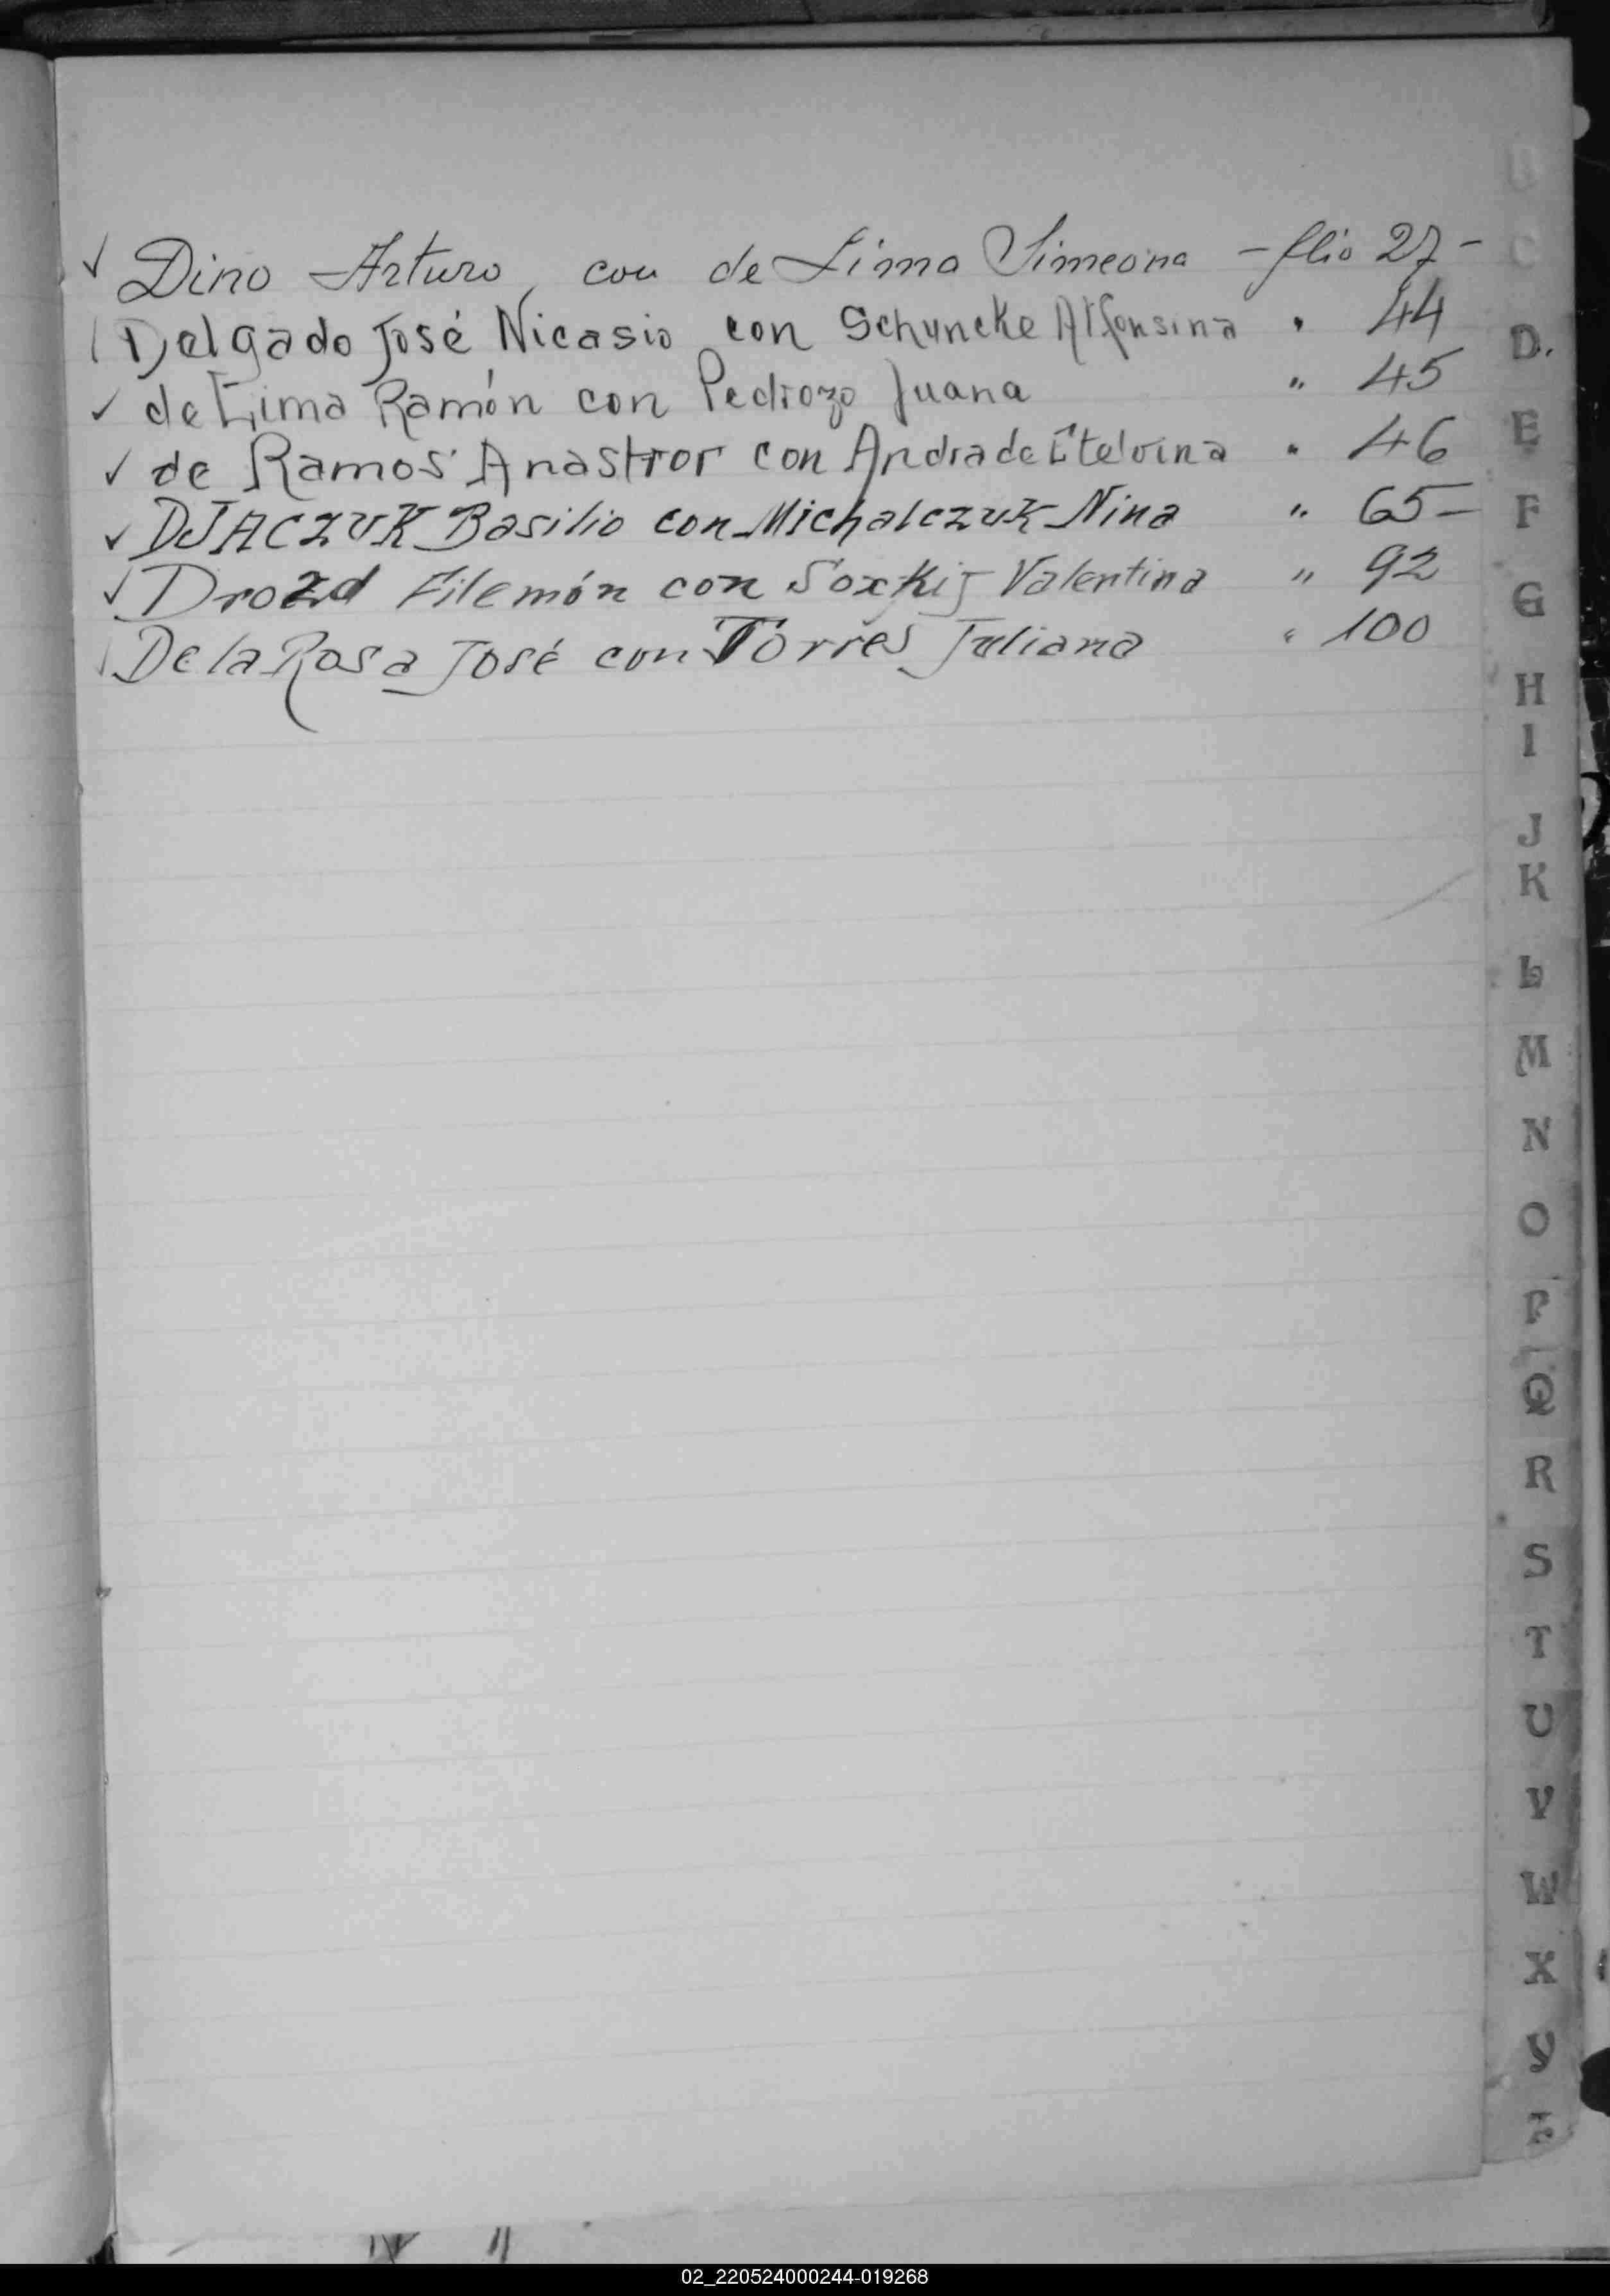 ✓ Dino Arturo, con de Lima Simeona - flio 27 -
Delgado José Nicasio con Schuncke Alfonsina " 44
✓ de Lima Ramón con Pedrozo Juana " 45
✓ de Ramos Anastror con Andrade Etelvina " 46
✓ DJACZUK Basilio con Michalczuk Nina " 65 -
✓ Drozd Filemón con Valentina " 92
De la Rosa José con Torres Juliana " 100
C
D.
E
F
G
H
I
J
K
L
M
N
O
P
Q
R
S
T
U
V
W
X
Y
Z
02_220524000244-019268